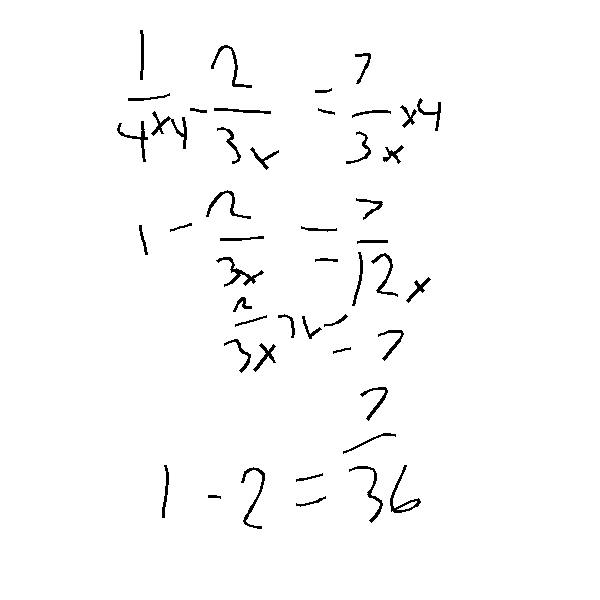 1/4 x4 - 2/3x = 7/3x x4
1 - 2/3x = 7/12x
2/3x = 7
1 - 2 = 7/36